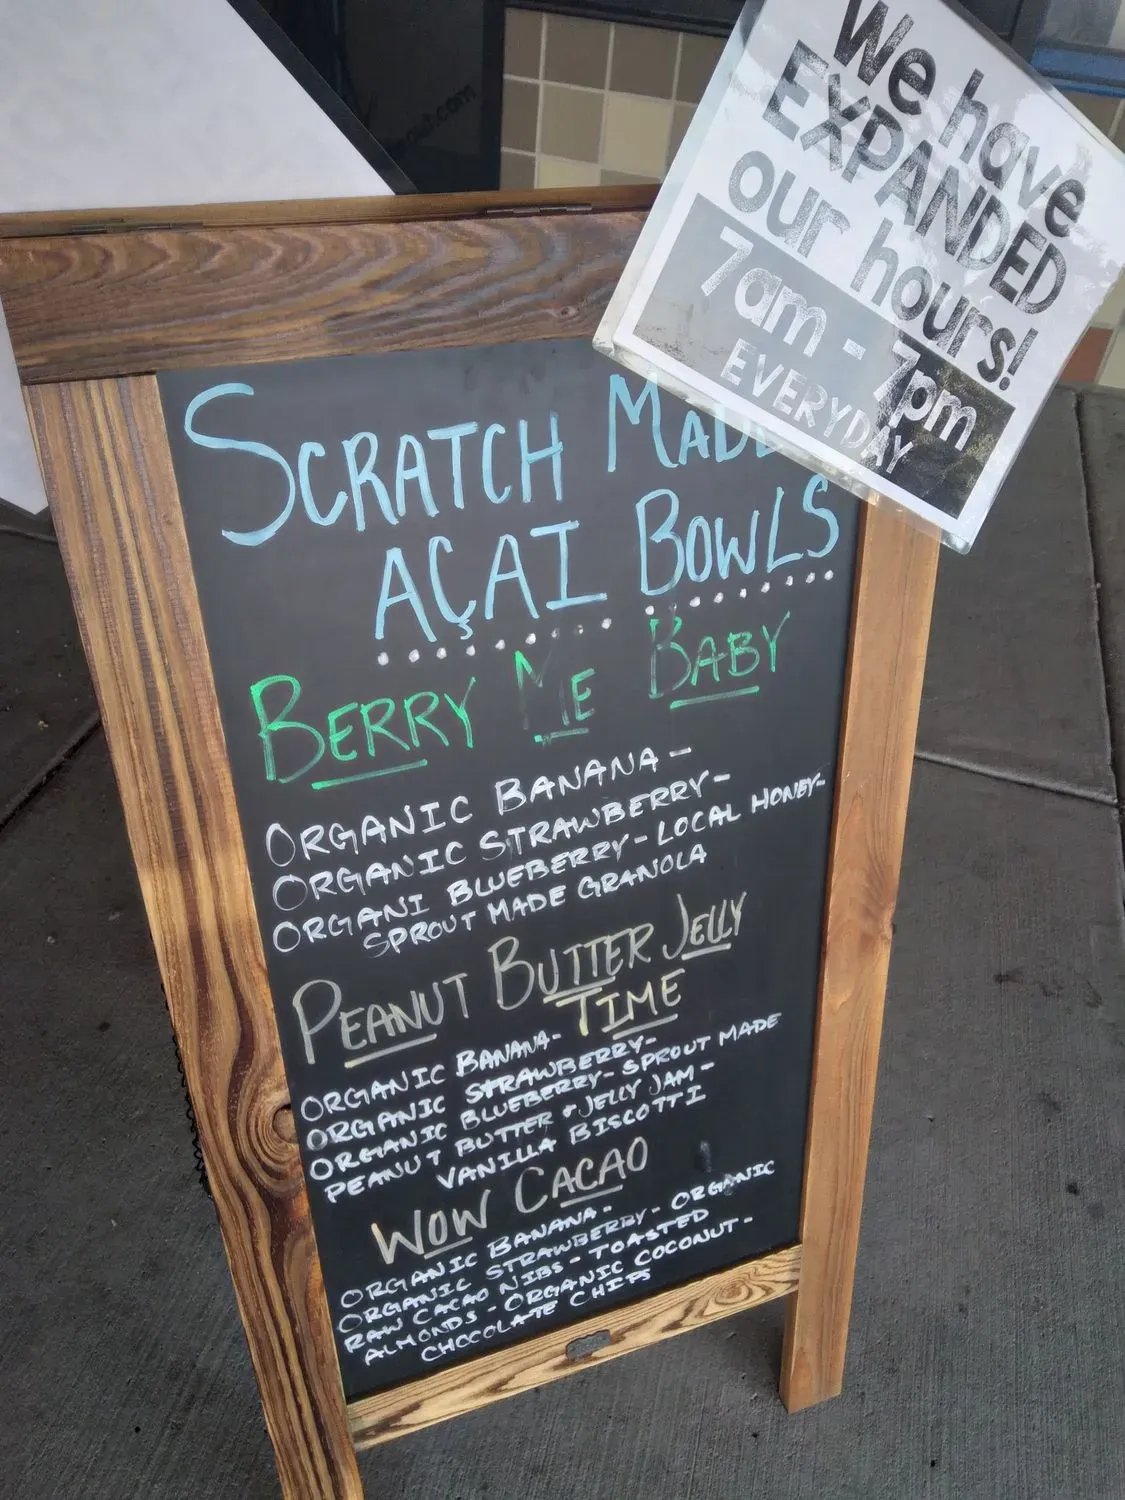 We have
EXPANDED
our hours!
7am - 7pm
EVERYDAY
SCRATCH MADE
AÇAI BOWLS
BERRY ME BABY
ORGANIC BANANA -
ORGANIC STRAWBERRY -
ORGANI BLUEBERRY - LOCAL HONEY -
SPROUT MADE GRANOLA
PEANUT BUTTER JELLY
TIME
ORGANIC BANANA -
ORGANIC STRAWBERRY -
ORGANIC BLUEBERRY - SPROUT MADE
PEANUT BUTTER & JELLY JAM -
VANILLA BISCOTTI
WOW CACAO
ORGANIC BANANA -
ORGANIC STRAWBERRY - ORGANIC
RAW CACAO NIBS - TOASTED
ALMONDS - ORGANIC COCONUT -
CHOCOLATE CHIPS